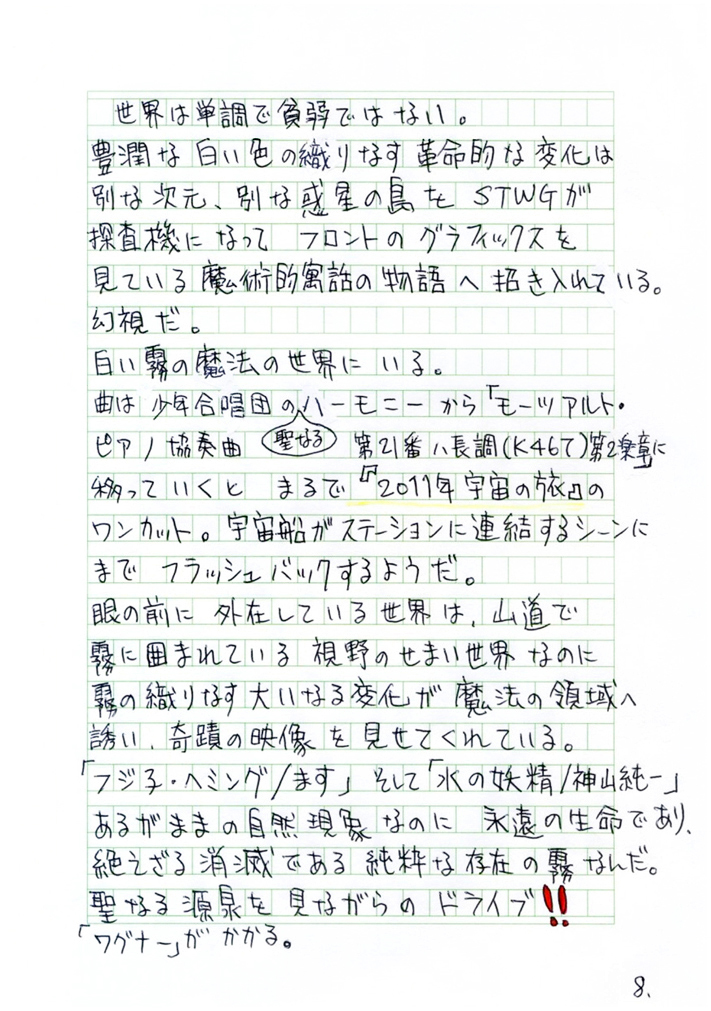 世界は単調で貧弱ではない。
豊潤な白い色の織りなす革命的な変化は
別な次元、別な惑星の島を STWGが
探査機になって フロントのグラフィックスを
見ている魔術的寓話の物語へ招き入れている。
幻視だ。
白い霧の魔法の世界にいる。
曲は 少年合唱団の聖なるハーモニーから「モーツアルト・
ピアノ協奏曲 第21番ハ長調(K467)第2楽章」に
移っていくと まるで『2011年宇宙の旅』の
ワンカット。宇宙船がステーションに連結するシーンに
まで フラッシュバックするようだ。
眼の前に 外在している世界は、山道で
霧に囲まれている 視野のせまい世界なのに
霧の織りなす大いなる変化が 魔法の領域へ
誘い、奇蹟の映像を見せてくれている。
「フジ子・ヘミング/ます」 そして「水の妖精/神山純一」
あるがままの自然現象なのに 永遠の生命であり、
絶えざる消滅である 純粋な存在の霧なんだ。
聖なる源泉を 見ながらの ドライブ!!
「ワグナー」が かかる。
8.